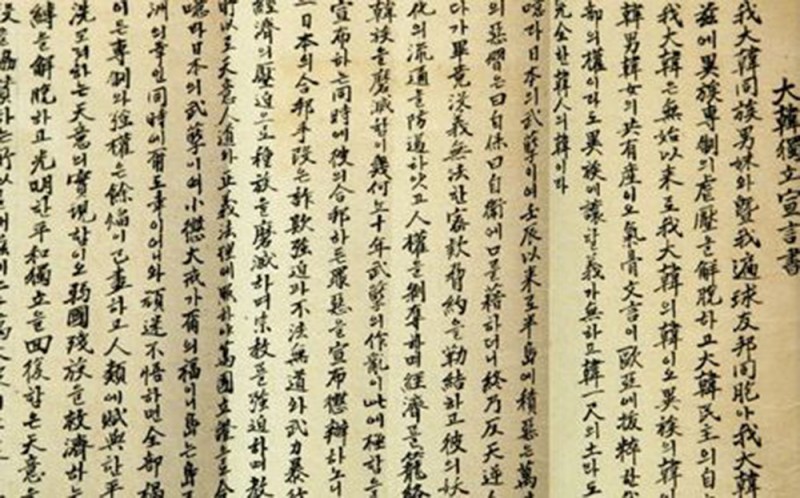 大韓獨立宣言書
我大韓同族男妹와曁我遍球友邦同胞아我大韓
玆에異族專制의虐壓을解脫하고大韓民主의自
我大韓은無始以來로我大韓의韓이오異族의韓이
韓男韓女의共有産이오氣骨文言이歐亞에拔粹한
部의權이라도異族에讓할義가無하고韓一尺의土라도
完全한韓人의韓이라
噫라日本의武孼이여壬辰以來로半島에積惡은萬
의惡僭은曰自保曰自衛에口를藉하더니終乃反天逆人
다가畢竟淫義無法한密款脅約을勒結하고彼의妖
化의流通을防遏하얏고人權을剝奪하며經濟를籠絡
韓族을磨滅함이幾何오十年武孼의作亂이此에極함으
宣布하는同時에彼의合邦하든罪惡을宣布懲辦하노니
一日本의合邦手段은詐欺强迫과不法無道와武力暴行
經濟의壓迫으로種族을磨滅하며宗敎를强迫하며敎
所以로天意人道와正義法理에照하야萬國立證으로合
噫라日本의武孼이여小懲大戒가爾의福이니島는島
洲의幸인同時에爾도幸이어니와頑迷不悟하면全部禍
이는專制와强權은餘焰이已盡하고人類에賦與한平
洗코저하는天意의實現함이오弱國殘族을救濟하는
縛을解脫하고光明한平和獨立을回復함은天意를